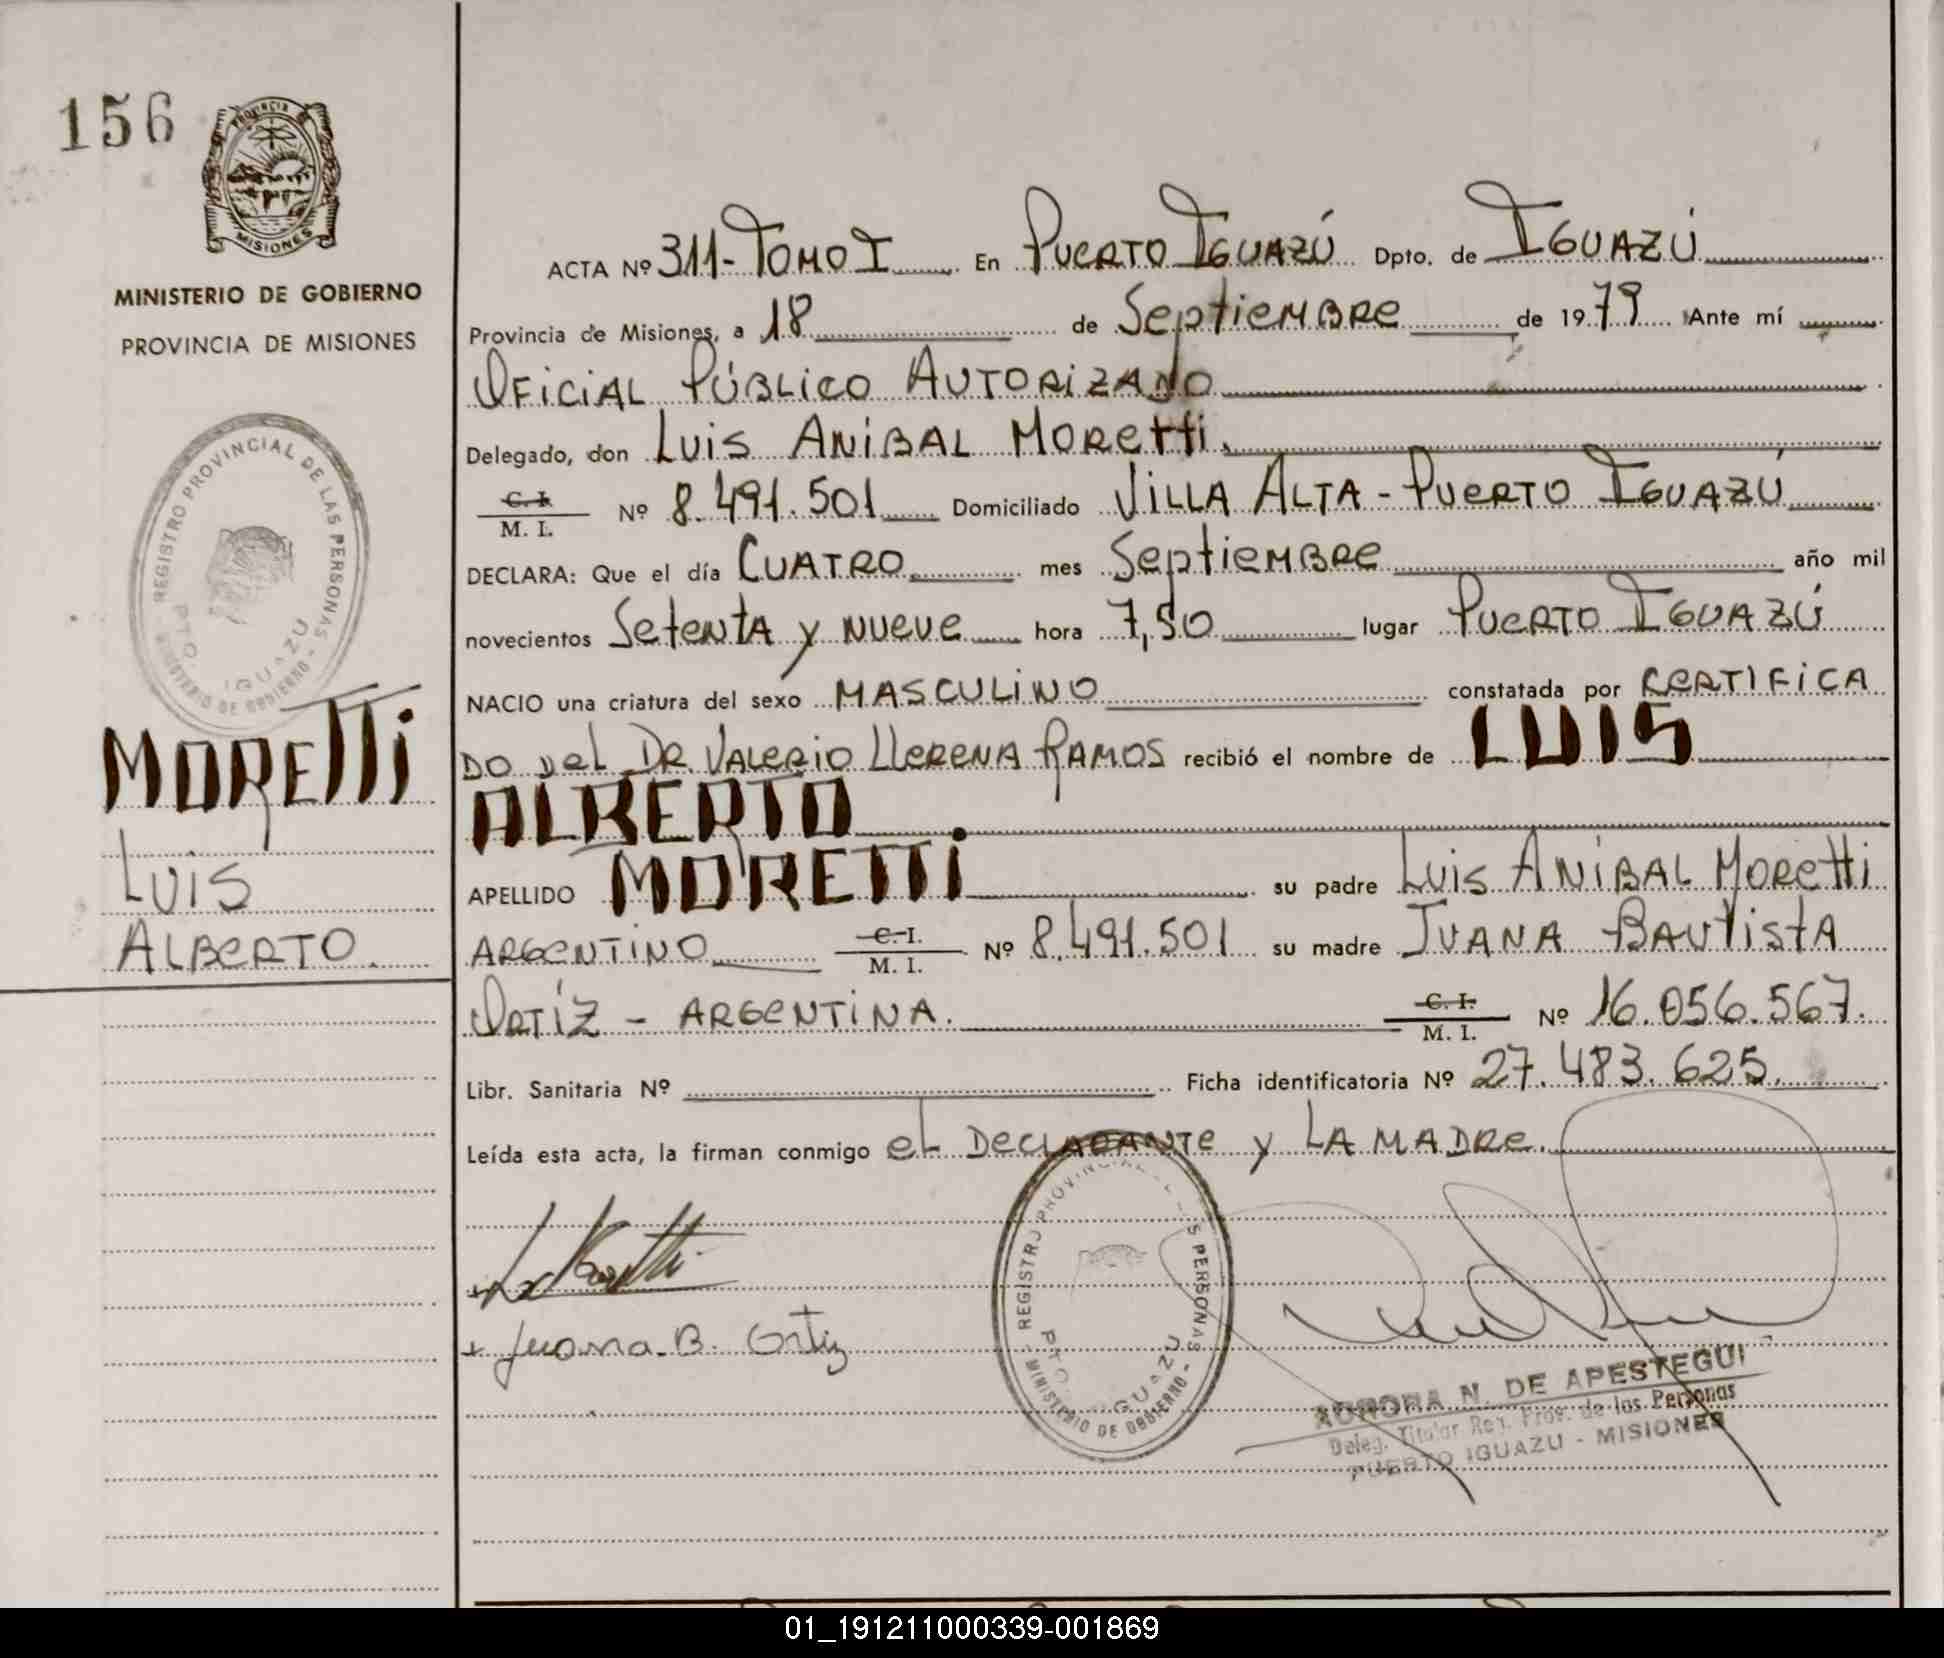 156
PROVINCIA DE
MISIONES
MINISTERIO DE GOBIERNO
PROVINCIA DE MISIONES
REGISTRO PROVINCIAL DE LAS PERSONAS
PTO. IGUAZU
MINISTERIO DE GOBIERNO
MORETTI
LUIS
ALBERTO
ACTA Nº 311-TOMO I En PUERTO IGUAZÚ Dpto. de IGUAZÚ
Provincia de Misiones, a 18 de Septiembre de 1979 Ante mí
OFICIAL PÚBLICO AUTORIZANO
Delegado, don Luis ANIBAL MORETTI.
C. I.
M. I. Nº 8.491.501 Domiciliado VILLA ALTA - PUERTO IGUAZÚ
DECLARA: Que el día CUATRO mes Septiembre año mil
novecientos Setenta y nueve hora 7,50 lugar PUERTO IGUAZÚ
NACIO una criatura del sexo MASCULINO constatada por CERTIFICA
DO DEL DR. VALERIO LLERENA RAMOS recibió el nombre de LUIS
ALBERTO
APELLIDO MORETTI su padre Luis ANÍBAL MORETTI
ARGENTINO C. I.
M. I. Nº 8.491.501 su madre JUANA BAUTISTA
ORTÍZ - ARGENTINA. C. I.
M. I. Nº 16.056.567.
Libr. Sanitaria Nº Ficha identificatoria Nº 27.483.625.
Leída esta acta, la firman conmigo EL DECLARANTE y LA MADRE.
Juana B. Ortiz
REGISTRO PROVINCIAL PERSONAS
PTO. IGUAZU
MINISTERIO DE GOBIERNO
AURORA N. DE APESTEGUI
Deleg. Titular Reg. Prov. de las Personas
PUERTO IGUAZU - MISIONES
01_191211000339-001869